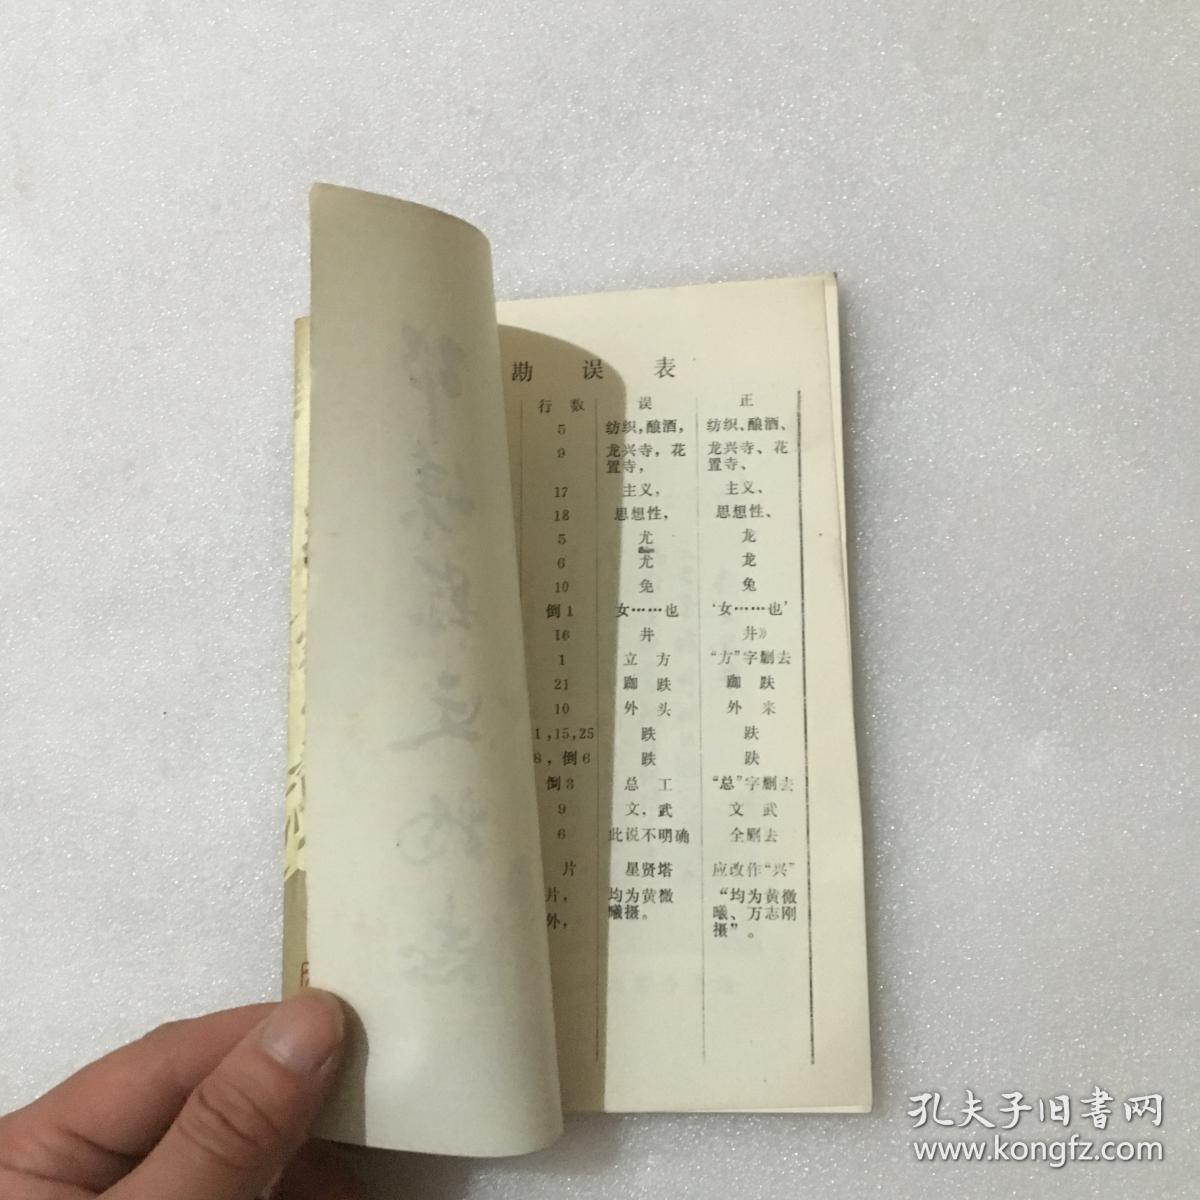 勘误表
行数 误 正
5 纺织，酿酒， 纺织、酿酒、
9 龙兴寺，花置寺， 龙兴寺、花置寺、
17 主义， 主义、
18 思想性， 思想性、
5 尤 龙
6 尤 龙
10 免 兔
倒1 女……也 '女……也'
16 井 井》
1 立方 “方”字删去
21
10 外头 外来
1，15，25
8，倒6
倒3 总工 “总”字删去
9 文，武 文武
6 此说不明确 全删去
片 星贤塔 应改作“兴”
片， 均为黄微曦摄。 “均为黄微曦、万志刚摄”。
外，
孔夫子旧書网
www.kongfz.com